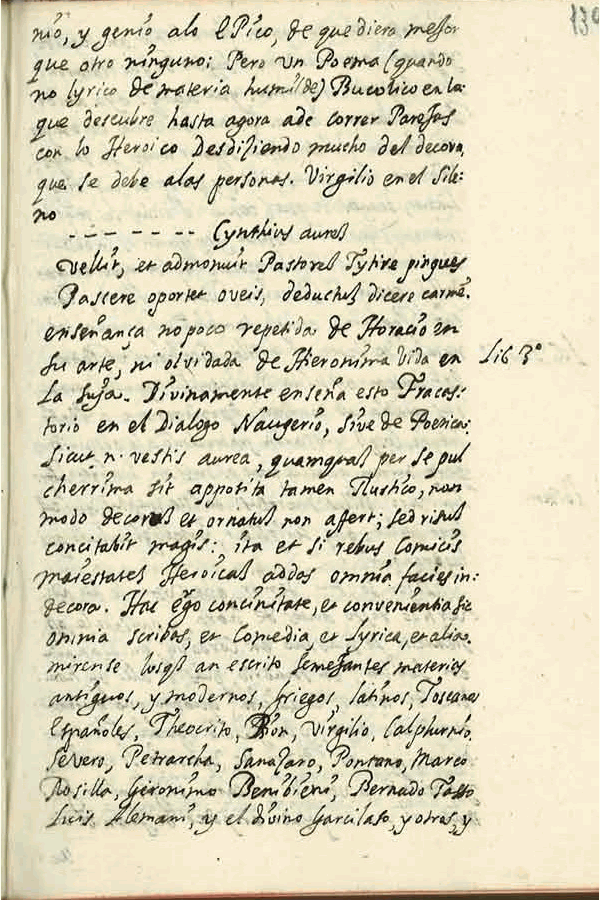 139
nio, y genio alo Epico, de que diera messor
que otro ninguno: Pero un Poema (quando
no lyrico de materia humilde) Bucolico en la
que descubre hasta agora ade correr Parejas
con lo Heroico Desdiziendo mucho del decoro,
que se debe alas personas. Virgilio en el Sile:
no
- - - - - - - Cynthius aurem
vellit, et admonuit Pastorem Tytire pingues
Pascere oportet oveis, deductum dicere carmẽ.
enseñança no poco repetida de Horacio en
su arte, ni olvidada de Hieronima Vida en Lib 3º
La suya. Divinamente enseña esto Fracas:
torio en el Dialogo Naugerio, sive de Poetica:
Sicut n. vestis aurea, quamquam per se pul
cherrima sit apposita tamen Rustico, non
modo decorem et ornatum non afert; sed risum
concitabit magis: ita et si rebus Comicis
maiestatem Heroicam addas omnia facies in:
decora. Hac ergo concinitate, et convenientia sic
omnia scribas, et Comedia, et lyrica, et alia.
mirense los q̃ an escrito semejantes materias
antiguos, y modernos, Griegos, latinos, Toscanos
Españoles, Theocrito, Bion, Virgilio, Calphurnio,
Severo, Petrarcha, Sanazaro, Pontano, Marco
Rosilla, Geronimo Benibieni, Bernado Tasso
Luis Alemani, y el divino Garcilaso, y otros, y